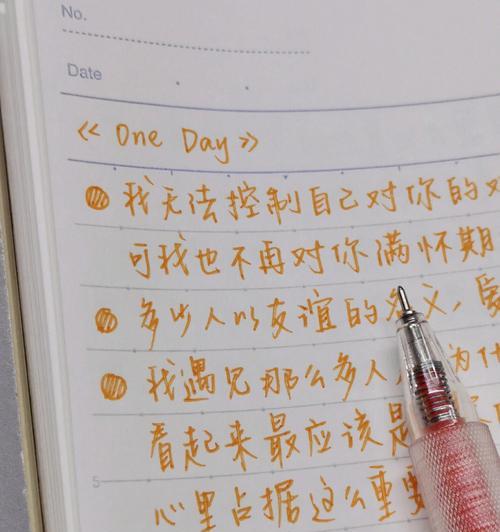 No.
Date
《One Day》
我无法控制自己对你的
可我也不再对你满怀期
多少人以友谊的名义，爱
我遇见那么多人，为什
看起来最应该是
5
心里占据这么重要